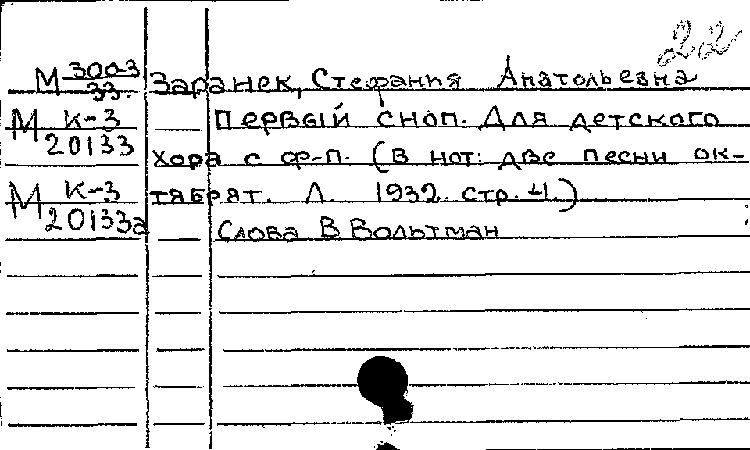 22
М 300-3/33. Заранек, Стефания Анатольевна
М К-3/20133 Первый сноп. Для детского
хора с ф-п. (В нот: две песни ок-
М К-3/20133а тябрят. Л. 1932. стр. 4.)
Слова В Вольтман